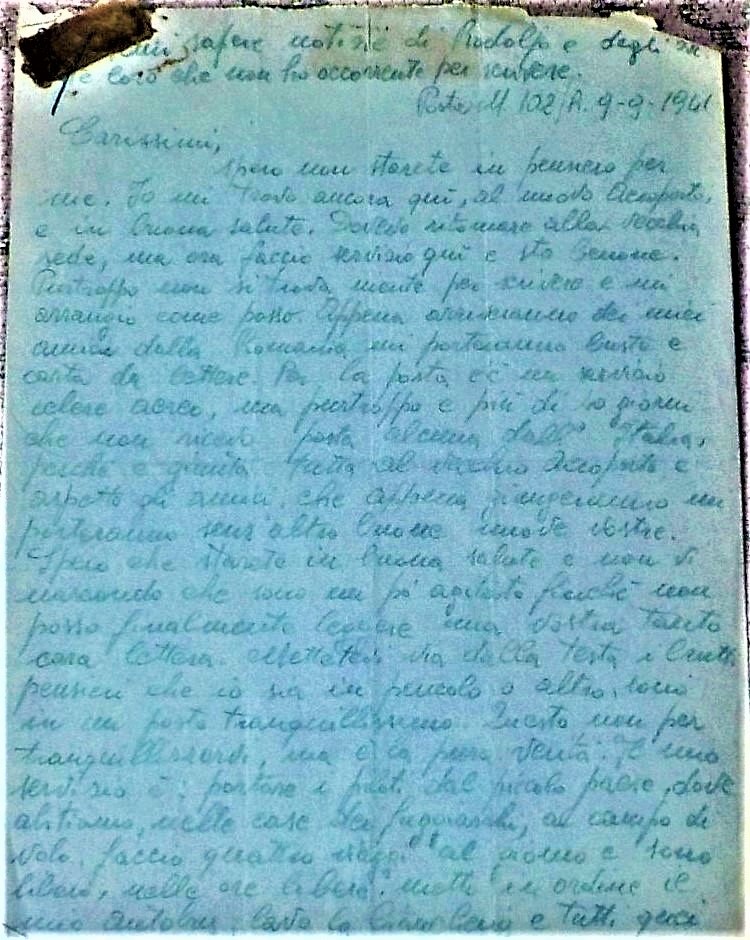 sapere notizie di Rodolfo e degli
loro che non ho occorrente per scrivere.
Posta M. 102/R. 9-9-1941
Carissimi,
spero non starete in pensiero per
me. Io mi trovo ancora qui, al nuovo Aeroporto,
e in buona salute. Dovevo ritornare alla vecchia
sede, ma ora faccio servizio qui e sto benone.
Purtroppo non si trova niente per scrivere e mi
arrangio come posso. Appena arriveranno dei miei
amici dalla Romania mi porteranno buste e
carta da lettere. Per la posta c'è un servizio
celere aereo, ma purtroppo è più di 10 giorni
che non ricevo posta alcuna dall'Italia,
perché è giunta tutta al vecchio Aeroporto e
aspetto gli amici, che appena giungeranno mi
porteranno senz'altro buone nuove vostre.
Spero che starete in buona salute e non vi
nascondo che sono un pò agitato finché non
posso finalmente leggere una vostra tanto
cara lettera. Mettetevi via dalla testa i brutti
pensieri che io sia in pericolo o altro, sono
in un posto tranquillissimo. Questo non per
tranquillizzarvi, ma è la pura verità. Il mio
servizio è: portare i piloti dal piccolo paese, dove
abitiamo, nelle case dei fuggiaschi, al campo di
volo. faccio quattro viaggi al giorno e sono
libero, nelle ore libere metto in ordine il
mio autobus, lavo la biancheria e tutti quei